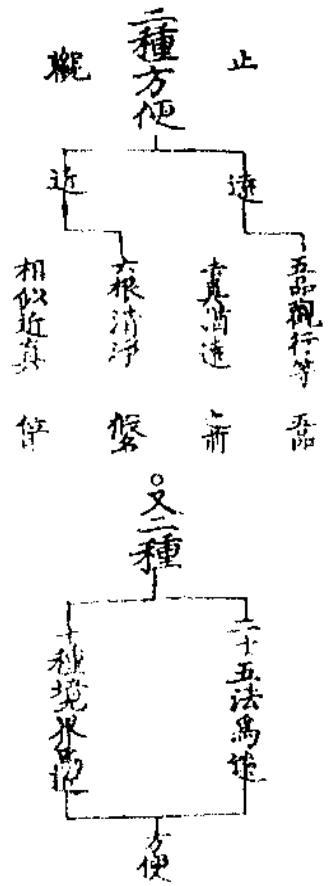 止
觀
二種方便
遠
近
五品觀行等
去真猶遠
六根清淨
相似近真
又二種
二十五法為遠
十種境界為近
方便